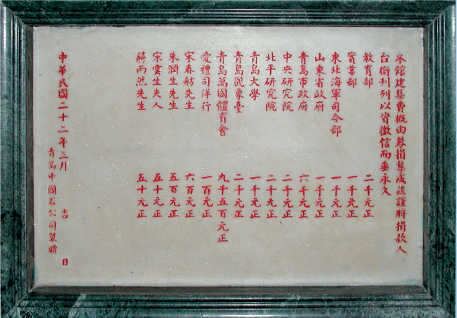 本館建築費概由募捐集成茲謹將捐款人
台銜刊列以資徵信而垂永久
教育部 二千元正
實業部 一千元正
東北海軍司令部 一千元正
山東省政府 一千元正
青島市政府 六千元正
中央研究院 二千元正
北平研究院 二千元正
青島大學 一千元正
青島觀象臺 二千元正
青島萬國體育會 九千五百元正
愛禮司洋行 一百元正
宋春舫先生 六百元正
朱潤生先生 五百元正
宋雲生夫人 五十元正
蔣丙然先生 五十元正
中華民國二十二年三月 吉日
青島中國石公司製贈